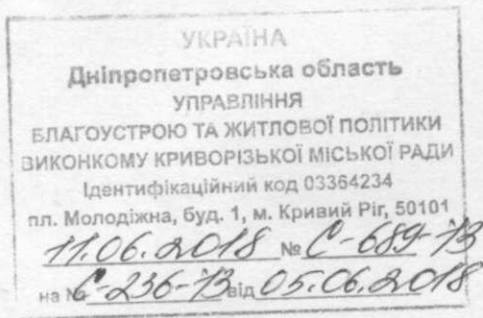 УКРАЇНА
Дніпропетровська область
УПРАВЛІННЯ
БЛАГОУСТРОЮ ТА ЖИТЛОВОЇ ПОЛІТИКИ
ВИКОНКОМУ КРИВОРІЗЬКОЇ МІСЬКОЇ РАДИ
Ідентифікаційний код 03364234
пл. Молодіжна, буд. 1, м. Кривий Ріг, 50101
11.06.2018 № С-689-13
на № С-236-13 від 05.06.2018